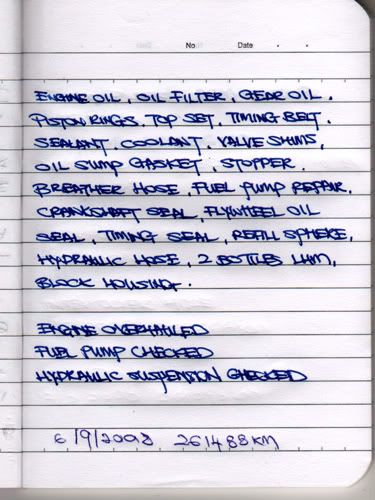 No. Date . .
ENGINE OIL, OIL FILTER, GEAR OIL.
PISTON RINGS, TOP SET, TIMING BELT.
SEALANT, COOLANT, VALVE SHIMS,
OIL SUMP GASKET, STOPPER.
BREATHER HOSE, FUEL PUMP REPAIR.
CRANKSHAFT SEAL, FLYWHEEL OIL
SEAL, TIMING SEAL, REFILL SPHERE,
HYDRAULIC HOSE, 2 BOTTLES LHM,
BLOCK HOUSING.
ENGINE OVERHAULED
FUEL PUMP CHECKED
HYDRAULIC SUSPENSION CHECKED
6/9/2008 261488KM